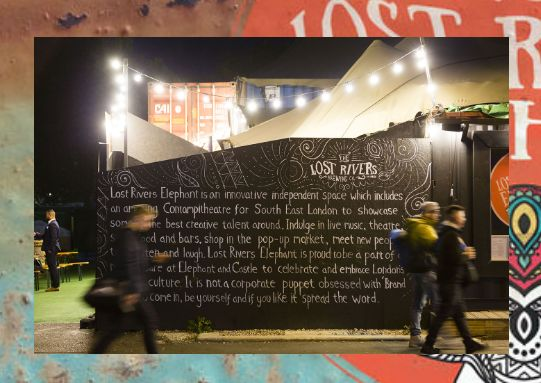 LOST
R
H
CAI
THE
LOST RIVERS
BREWING CO.
Lost Rivers Elephant is an innovative independent space which includes
an Contampitheatre for South East London to showcase
some best creative talent around. Indulge in live music, theatre,
food and bars, shop in the pop-up market, meet new peop
and laugh. Lost Rivers Elephant is proud to be a part of
at Elephant and Castle to celebrate and embrace London's
culture. It is not a corporate puppet obsessed with Brand
come in, be yourself and if you like it spread the word.